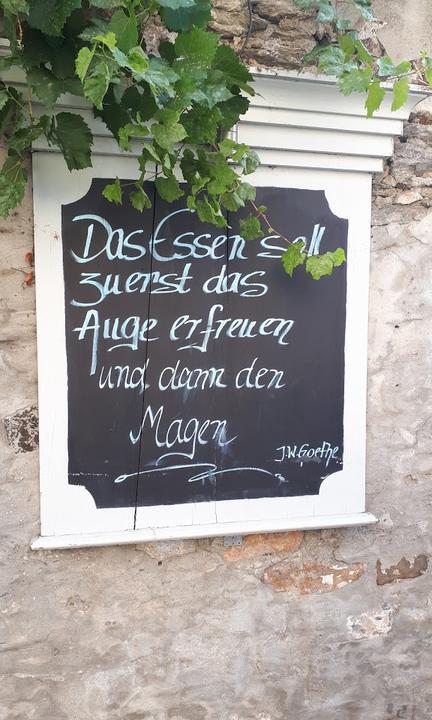 Das Essen soll
zuerst das
Auge erfreuen
und dann den
Magen
J.W.Goethe